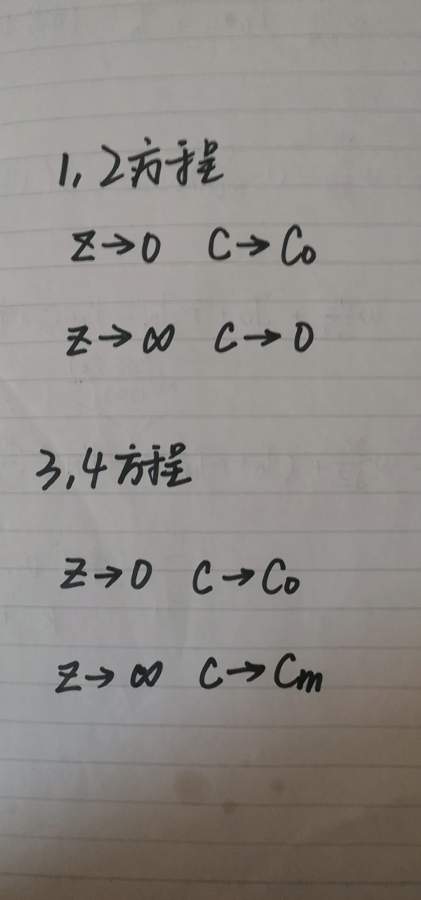 1,2方程
z→0 C→C₀
z→∞ C→0
3,4方程
z→0 C→C₀
z→∞ C→Cm